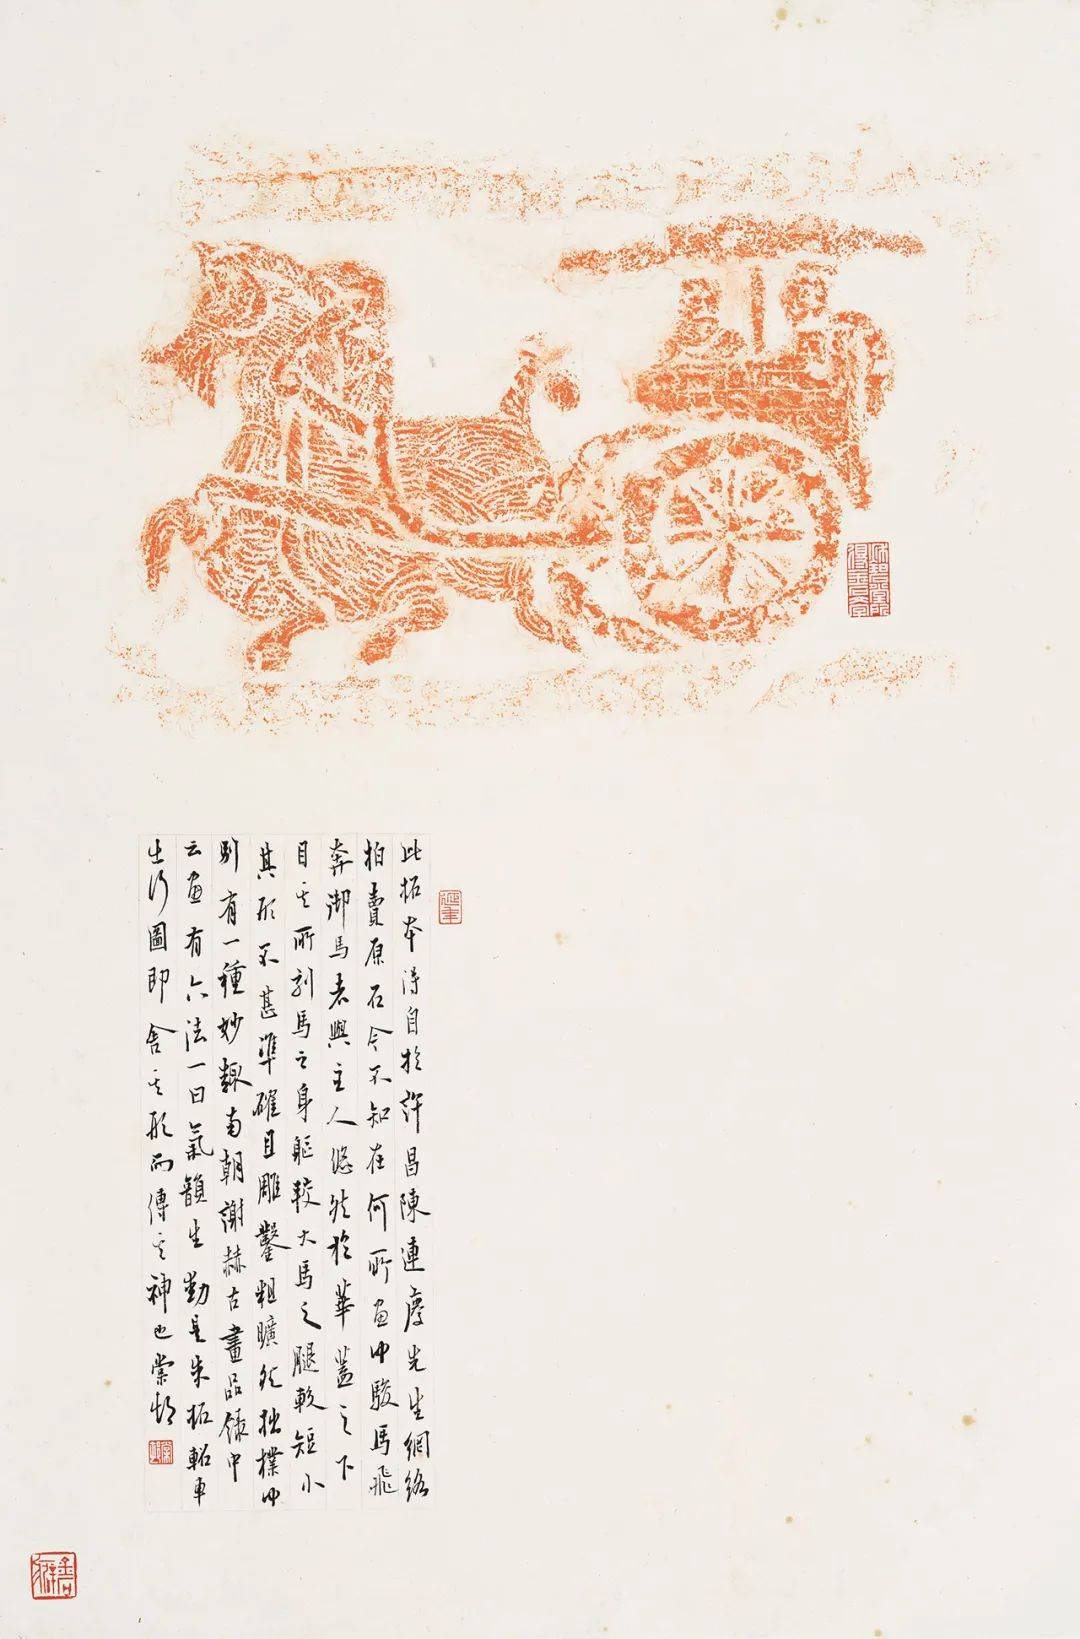 延年
此拓本得自於許昌陳連慶先生網絡
拍賣原石今不知在何所畫中駿馬飛
奔御馬者與主人悠然於華蓋之下
目其所刻馬之身軀較大馬之腿較短小
其形不甚準確且雕鑿粗曠然拙樸中
別有一種妙趣南朝謝赫古畫品錄中
云畫有六法一曰氣韻生動是朱拓軺車
出行圖即舍其形而傳其神也
金石癖